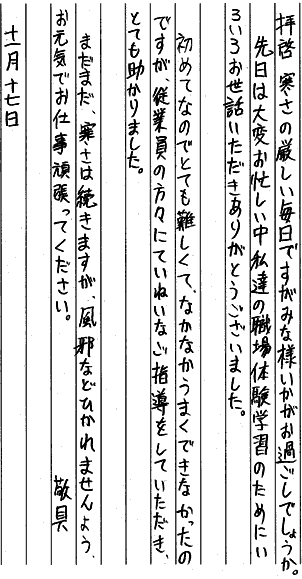 拝啓 寒さの厳しい毎日ですがみな様いかがお過ごしでしょうか。
先日は大変お忙しい中私達の職場体験学習のためにい
ろいろお世話いただきありがとうございました。
初めてなのでとても難しくて、なかなかうまくできなかったの
ですが、従業員の方々にていねいなご指導をしていただき、
とても助かりました。
まだまだ、寒さは続きますが、風邪などひかれませんよう、
お元気でお仕事頑張ってください。
敬具
十一月十七日